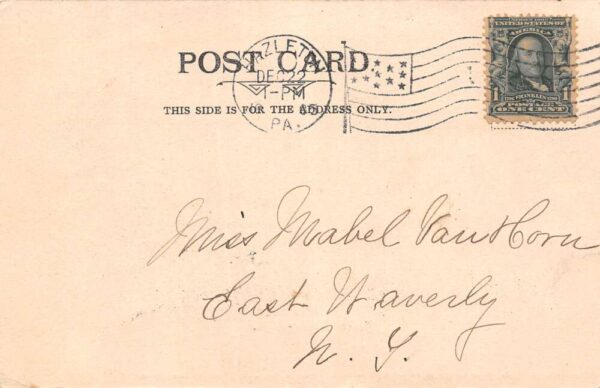 POST CARD
HAZLETON
DEC 22
1-PM
05
PA.
THIS SIDE IS FOR THE ADDRESS ONLY.
UNITED STATES OF
AMERICA
1 POSTAGE 1
ONE CENT
Miss Mabel VanHorn
East Waverly
N. Y.